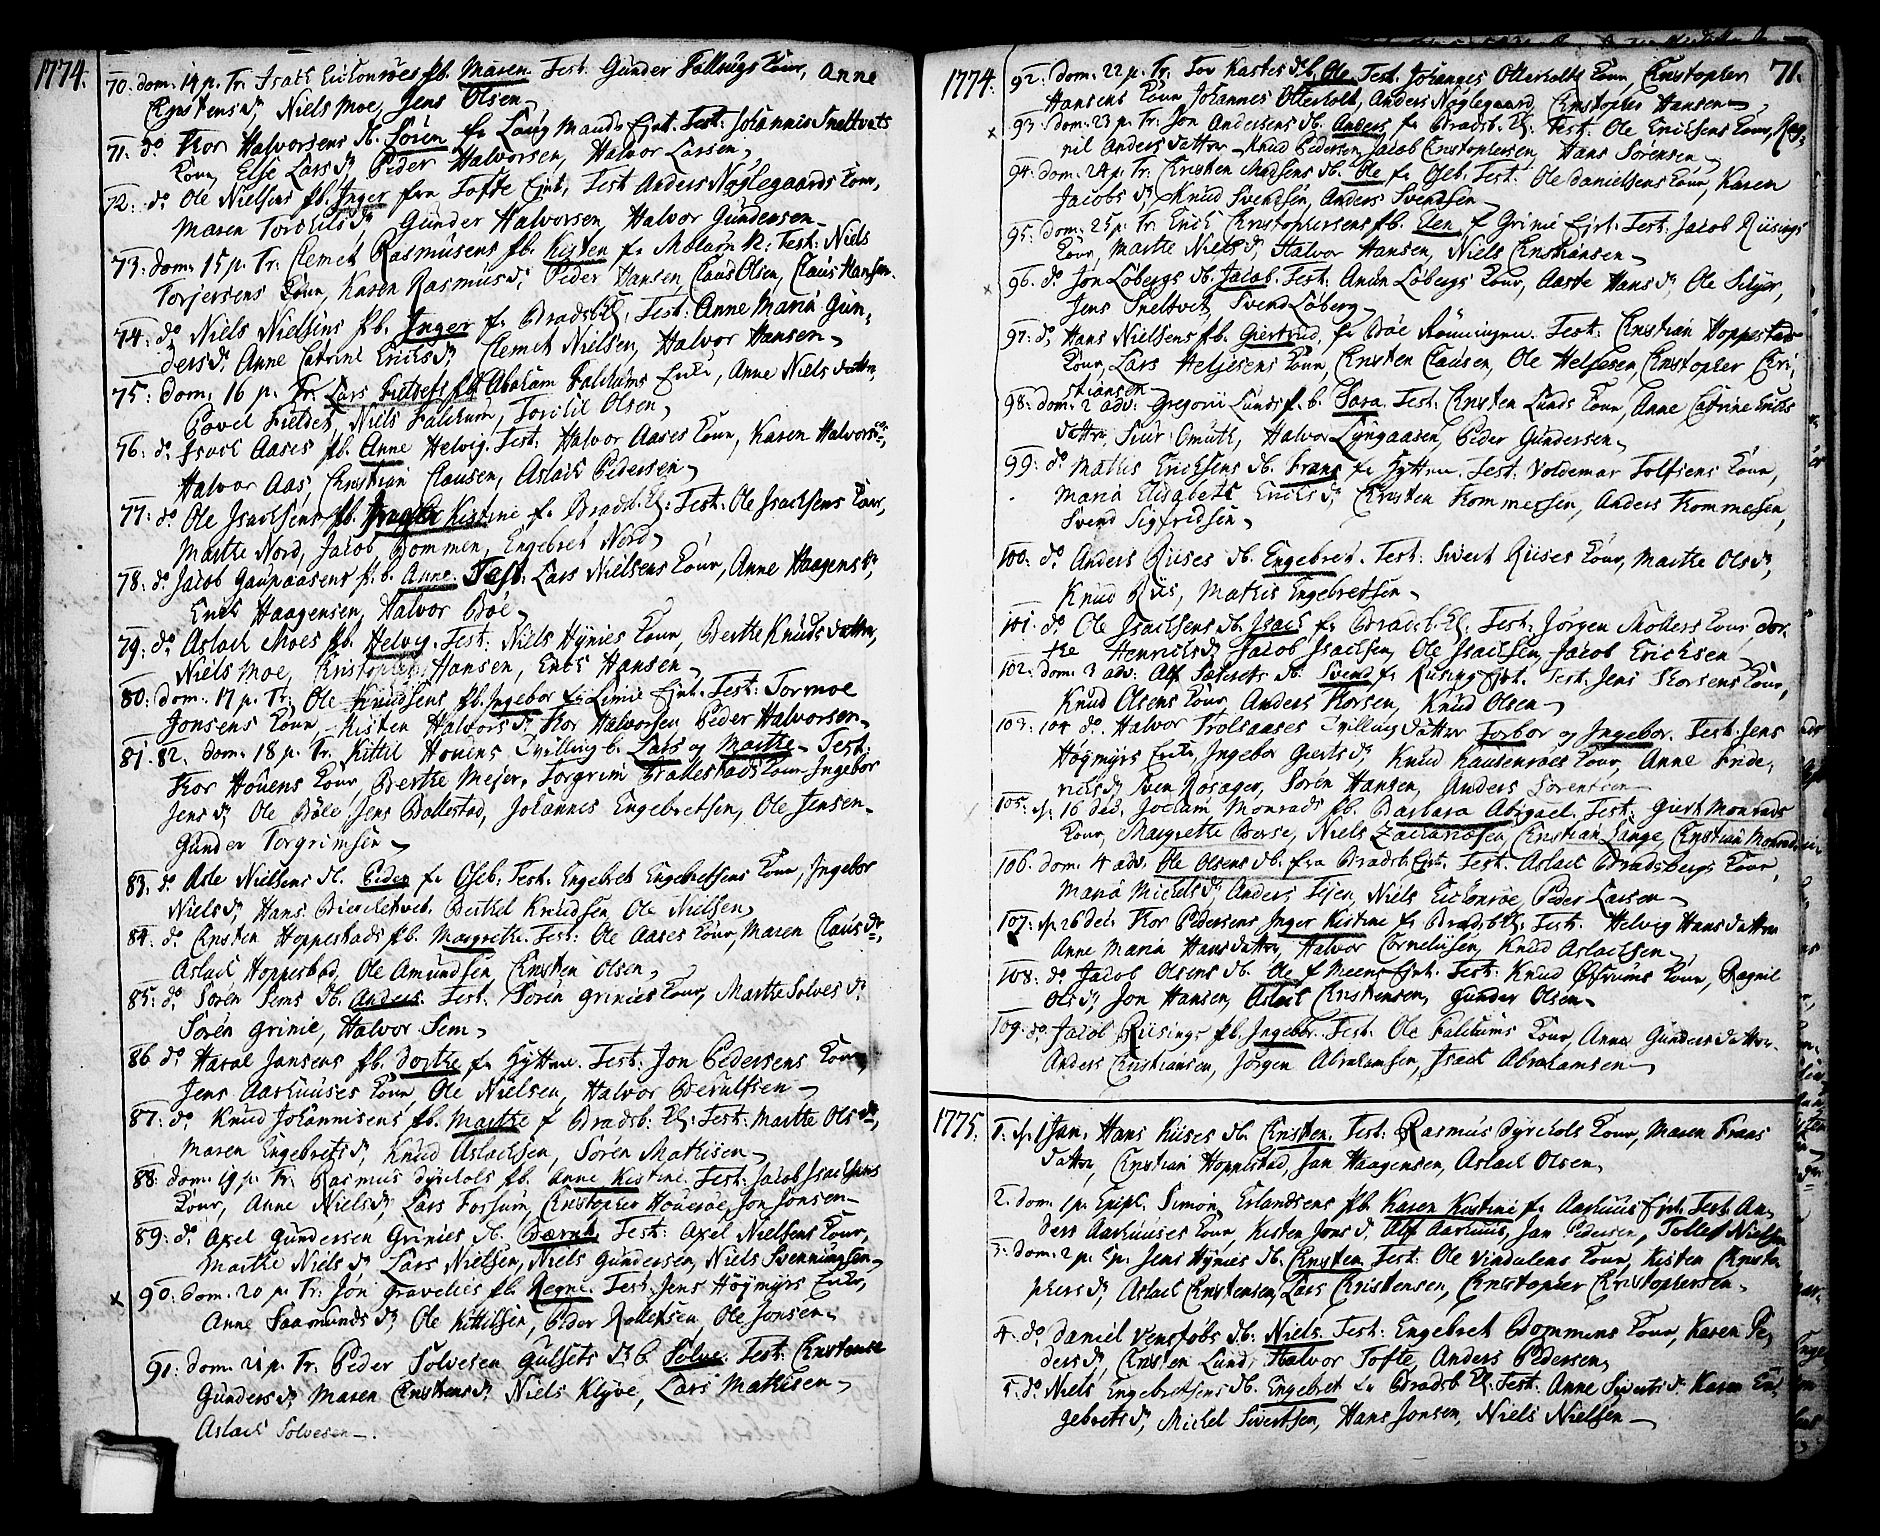 1774.
70. dom. 14 p. Tr. Isach Eichonroes pb. Maren Test. Gunder Kone, Anne
Christens dr, Niels Moe, Jens Olsen
71. do Thor Halvorsens db. Søren fr Ejnt. Test: Johannis Sneltvets
Kone, Else Lars dr, Peder Halvorsen, Halvor Larsen,
72. do Ole Nielsens pb. Inger fra Tofte Ejnt. Test Anders Nøglegaards Kone,
Maren Torchils dr, Gunder Halvorsen, Halvor Gundersen
73. dom. 15 p. Tr. Clemet Rasmusens pb. Kisten fr Test: Niels
Torjersens Kone, Karen Rasmus dr, Peder Hansen, Claus Olsen, Claus Hansen.
74. do Niels Nielsens pb. Inger fr Bradsb. Test: Anne Maria Gun-
ders dr Anne Catrine Erichs dr, Clemet Nielsen, Halvor Hansen
75. dom. 16 p. Tr. Lars pb. Abraham Falchums Enke, Anne Niels datter,
Povel Fieldet, Niels Falchum, Torchil Olsen,
76. do Isach Aases pb. Anne Helvig. Test: Halvor Aases Kone, Karen Halvors dr,
Halvor Aas, Christian Clausen, Aslach Pedersen
77. do Ole Isachsens pb. Kistine fr Bradsb. Test: Ole Isachsens Kone,
Marthe Nord, Jacob Bommen, Engebret Nord
78. do Jacob Gaupaasens p. b. Anne. Test: Lars Nielsens Kone, Anne Haagens dr,
Erich Haagensen, Halvor Bøe
79. do Aslach Moes pb. Helvig. Test. Niels Hynies Kone, Berthe Knuds datter,
Niels Moe, Christopher Hansen, Erich Hansen
80. dom. 17 p. Tr. Ole Knudsens pb. Ingebor fr Limie Ejnt. Test: Tormoe
Jonsens Kone, Kisten Halvors dr, Thor Halvorsen Peder Halvorsen
81. 82. dom. 18 p. Tr. Kittil Houens Tvilling b. Lars og Marthe. Test:
Thor Houens Kone, Berthe Mejer, Torgrim Ballestads Kone Ingebor
Jens dr, Ole Bøle, Jens Ballestad, Johannes Engebretsen, Ole Jensen
Gunder Torgrimsen
83. do Asle Nielsens d. Peder fr Giseb: Test. Engebret Engebretsens Kone, Ingebor
Niels dr, Hans Berthel Knudsen, Ole Nielsen,
84. do Christen Hoppestads pb. Margrethe. Test: Ole Aases Kone, Maren Claus dr,
Aslach Hoppestad, Ole Amundsen, Christen Olsen,
85. do Søren Sems db. Anders. Test: Søren Grinies Kone, Marthe Solves dr
Søren Grinie, Halvor Sem,
86 do Haral Jansens pb. Dorthe fr Hytten. Test: Jon Pedersens Kone,
Jens Aarhuuses Kone, Ole Nielsen, Halvor Berulfsen
87. do Knud Johannisens pb. Marthe f Bradsb: Test: Marthe Ols dr,
Maren Engebrets dr, Knud Aslachsen, Søren Mathisen
88. dom. 19 p. Tr. Rasmus Dyrchols pb. Anne Kistine. Test: Jacob Isachsens
Kone, Anne Niels dr, Lars Fossum, Christopher Houeroe, Jon Jonsen
89. do Axel Gundersen Grinies db. Test: Axel Nielsens Kone,
Marthe Niels dr, Lars Nielsen, Niels Gundersen, Niels Svenningsen
x 90. dom. 20 p. Tr: Jon Gravelies pb. Regne. Test. Jens Høgmyrs Enke,
Anne Saamunds dr, Ole Kittilsen, Peder Rollefsen, Ole Jonsen
91. dom. 21 p. Tr. Peder Solvesen Gulsets d. b. Solve. Test: Christense
Gunders dr, Maren Christens dr, Niels Klyve, Lars Mathisen
Aslach Solvesen
1774. 71.
92. dom. 22 p. Tr. Tov Kastes db. Ole. Test. Johanges Otterholts Kone, Christopher
Hansens Kone Johannes Otterholt, Anders Nøglegaard, Christopher Hansen
x 93. dom. 23 p. Tr. Jon Andersens db. Anders fr Bradsb. Test. Ole Erichsens Kone, Rag-
nil Anders datter Knud Pedersen, Jacob Christophersen, Hans Sørensen
94. dom. 24 p. Tr. Christen Madsens db. Ole fr Giseb. Test: Ole Danielsens Kone, Karen
Jacobs dr, Knud Svendsen, Anders Svendsen
95. dom. 25 p. Tr. Erich Christophersens pb. Elen f Grinie Ejnt. Test: Jacob Riisings
Kone, Marthe Niels dr, Halvor Hansen, Niels Christiansen
x 96. do Jon Løbergs db. Jacob. Test: Anun Løbergs Kone, Aaste Hans dr, Ole Siljor,
Jens Sneltvet, Svend Løberg
97. do Hans Nielsens pb. Giertrud fr Bøe Rønningen. Test: Christian Hoppestads
Kone, Lars Heljesens Kone, Christen Clausen, Ole Heljesen, Christopher Chri-
stiansen
98. dom. 2 adv: Gregorii Lunds p. b. Sara. Test: Christen Lunds Kone, Anne Catrine Erichs
datter, Siur Omult, Halvor Lyngaasen, Peder Gundersen
99. do Mathis Erichsens db. Frans fr Hytten. Test: Voldemar Tolfsens Kone,
Maria Elisabeth Erichs dr, Christen Trommesen, Anders Trommesen,
Svend Sigfridsen,
100. do Anders Riises db. Engebret. Test: Sivert Riises Kone, Marthe Ols dr,
Knud Riis, Mathis Engebretsen
101. do Ole Isachsens db. Isach fr Bradsb. Test: Jørgen Møllers Kone, Dor-
the Henrichs dr Jacob Isachsen, Ole Isachsen, Jacob Erichsen
102. dom. 3 adv: Alf Sætrets db. Svend fr Riising Ejnt. Test: Jens Thorsens Kone,
Knud Olsens Kone, Anders Thorsen, Knud Olsen
103. 104 do Halvor Trolsaases Tvilling datter Torbor og Ingebor. Test: Jens
Høgmyrs Enke, Ingebor Gierts dr, Knud Kausenrøes Kone, Anne Fride-
richs dr, Sven Røsager, Søren Hansen, Anders Sørensen
105. d. 16 dec. Jochum Monrads pb. Barbara Abigael. Test. Giert Monrads
Kone, Margrethe Borse, Niels Zachariæsen, Christian Lange, Christian Monrad
106. dom. 4 adv. Ole Olsens db. fra Bradsb. Ejnt. Test. Aslach Bradsbergs Kone,
Maria Michels dr, Anders Niels Eichonroe, Peder Larsen
107. d. 26 dec. Thor Pedersens Inger Kistine fr Bradsb. Test. Helvig Hans datter
Anne Maria Hans datter, Halvor Corneliisen, Knud Aslachsen
108. do Jacob Olsens db. Ole f Meens Ejnt. Test: Knud Øfrums Kone, Ragnil
Ols dr, Jon Hansen, Aslach Christensen, Gunder Olsen
109. do Jacob Riisings pb. Ingebor. Test. Ole Falchums Kone, Anne Gunders datter
Anders Christiansen, Jørgen Abrahamsen, Isach Abrahamsen
1775. 1. d. 1 Jan. Hans Riises db. Christen. Test: Rasmus Dyrchols Kone, Maren Frans
datter, Christian Hoppestad, Jan Haagensen, Aslach Olsen
2. dom. 1 p. Epiph. Simon Erlandsens pb. Karen Kistine fr Aarhuus Ejnt. Test. An-
ders Aarhuuses Kone, Kisten Jons dr, Alf Aarhuus, Jan Pedersen, Tollef Nielsen
3. dom. 2 p. Ep. Jens Hynies db. Christen. Test: Ole Vindalens Kone, Kisten Christo-
phers dr, Aslach Christensen, Lars Christensen, Christopher Christophersen
4. do Daniel Venstøbs db. Niels. Test: Engebret Bommens Kone, Karen Pe-
ders dr, Christen Lund, Halvor Tofte, Anders Pedersen
5. do Niels Engebretsens db. Engebret fr Bradsb. Test. Anne Siverts dr Karen En-
gebrets dr, Michel Sivertsen, Hans Jonsen, Niels Nielsen